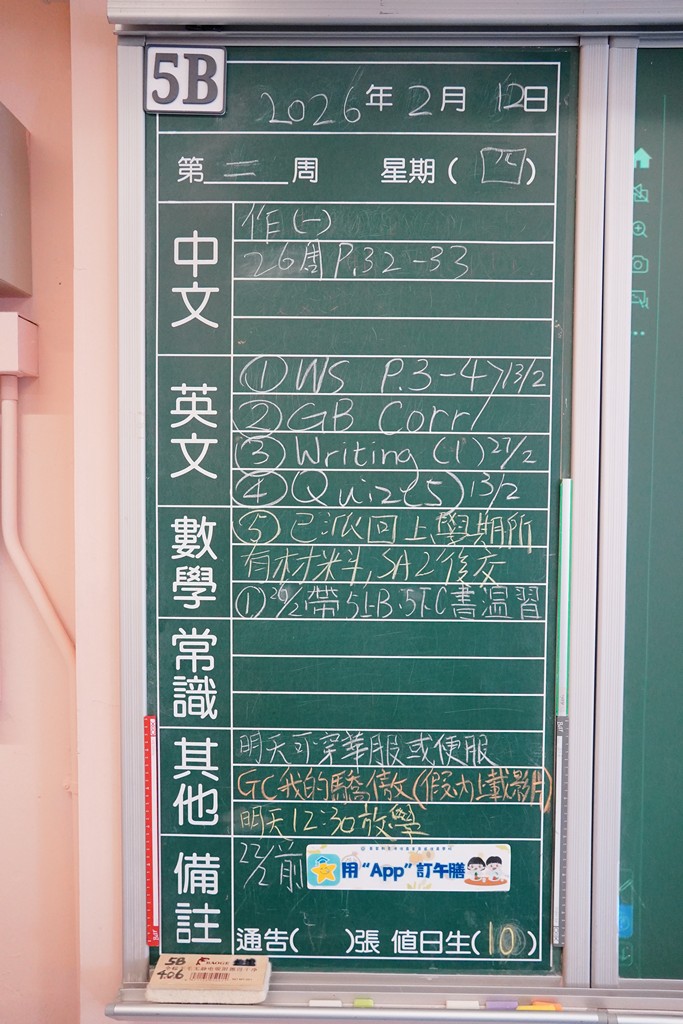 5B
2026年2月12日
第二周 星期(四)
中文
作(一)
26周 P.32-33
英文
① WS P.3-4 13/2
② GB Corr
③ Writing (1) 27/2
④ Quiz(5) 13/2
⑤ 已派回上學期所
有材料, SA2後交
數學
① 26/2帶5上B、5下C書溫習
常識
其他
明天可穿華服或便服
GC我的驕傲(假內上載影片)
明天12:30放學
備註
22/2前
用“App”訂午膳
通告( )張 值日生(10)
5B
406